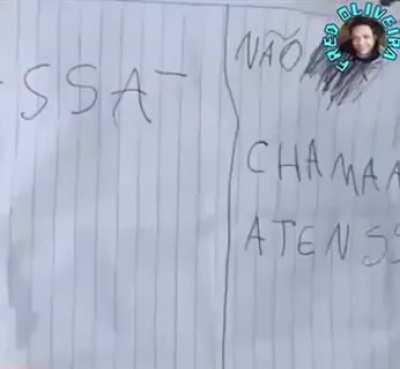 SSA-
NÃO
CHAMAA
ATENSS
FRED OLIVEIRA